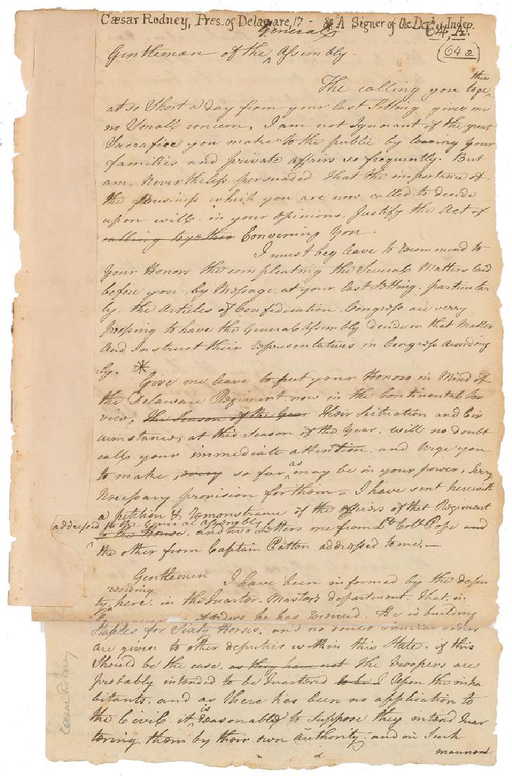 Cæsar Rodney, Pres. of Delaware, 17 - & A Signer of the Decn. of Indep.
64, A.
(64 a)
General
Gentlemen of the ^ Assembly.
The calling you together
at so Short a day from your last Sitting gives me
no Small concern, I am not Ignorant of the great
Sacrafice you make to the public by leaving your
families and private affairs so frequently. But
am Nevertheless persuaded that the importance of
the Business which you are now called to decide
upon will in your opinions, Justify the Act of
calling together Convening You.
I must beg leave to recommend to
Your Honors the compleating the Several Matters laid
before you, by Message at your last Sitting, particular
ly the Articles of Confederation. Congress are very
pressing to have the General Assembly decide on that Matter
and Instruct their representatives in Congress according
ly. *
Give me leave to put your Honors in Mind of
the Delaware Regiment now in the Continental Ser
vice, the Season of the Year Their Situation and Cir
cumstances, at this Season of the Year, will no doubt
call your immediate attention and Urge you
to make, so far as may be in your power, Every
Necessary provision for them — I have sent herewith
a petition & remonstrance of the officers of that Regiment
addressed to the General Assembly
to the House, and two letters one from Lt. Coll. Pope and
the other from Captain Patten addressed to me. —
Gentlemen I have been informed by the depu
ty residing here, in the Quarter-Masters department, that, in
orders he has received, He is building
Stables for Sixty Horses, and no
are given to other deputies within this State, if this
Should be the case, as they have not the Troopers are
probably intended to be Quartered Upon the inha
bitants, and as there has been no application to
the Civil, it is reasonable to Suppose they intend Quar
tering them by their own Authority, and in Such
mannor
Cæsar Rodney